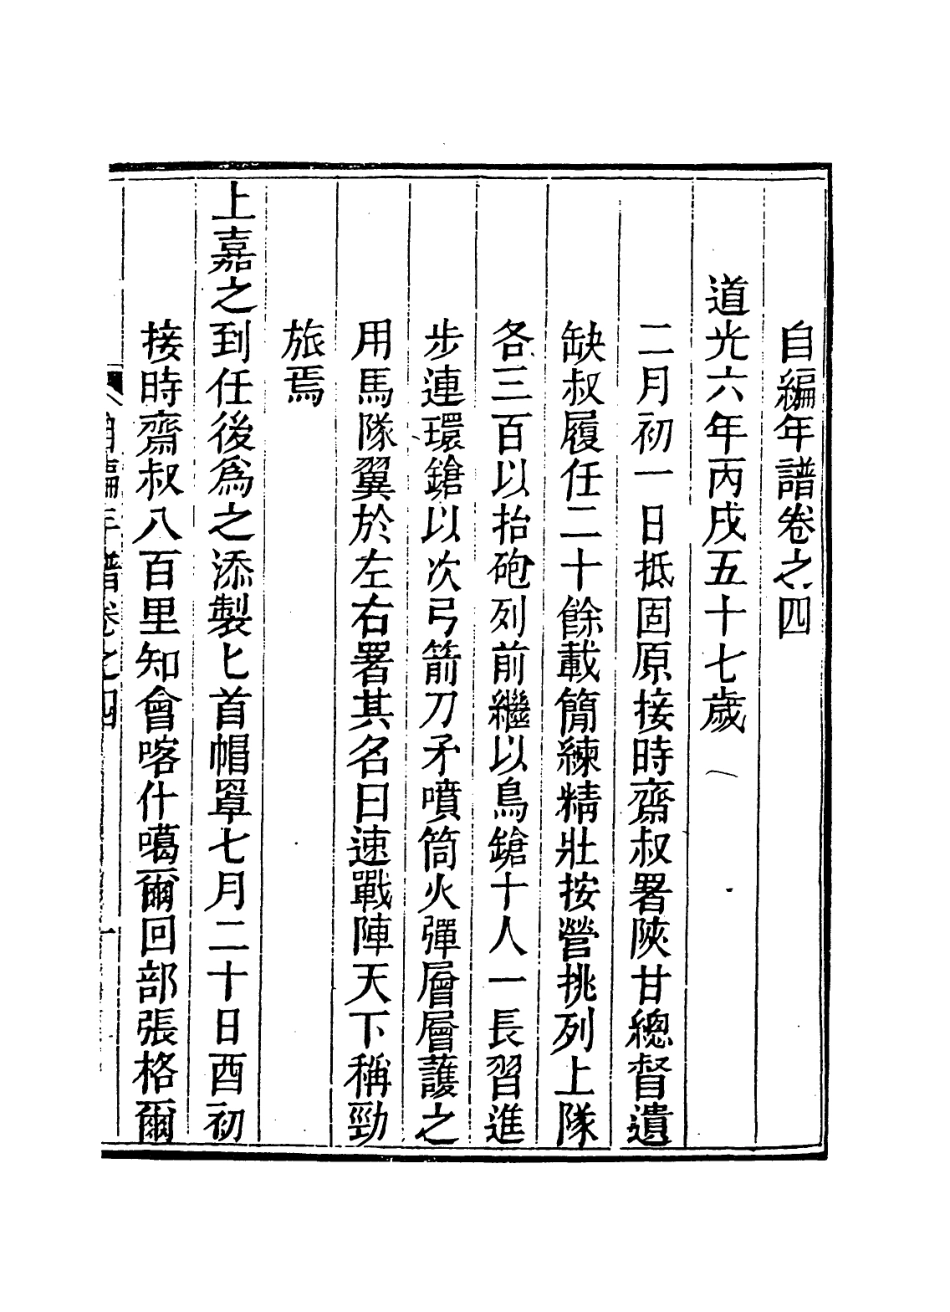 自編年譜卷之四
道光六年丙戌五十七歲
二月初一日抵固原接時齋叔署陝甘總督遺
缺叔履任二十餘載簡練精壯按營挑列上隊
各三百以抬砲列前繼以鳥鎗十人一長習進
步連環鎗以次弓箭刀矛噴筒火彈層層護之
用馬隊翼於左右署其名曰速戰陣天下稱勁
旅焉
上嘉之到任後爲之添製匕首帽罩七月二十日酉初
接時齋叔八百里知會喀什噶爾回部張格爾
自編年譜卷之四 一